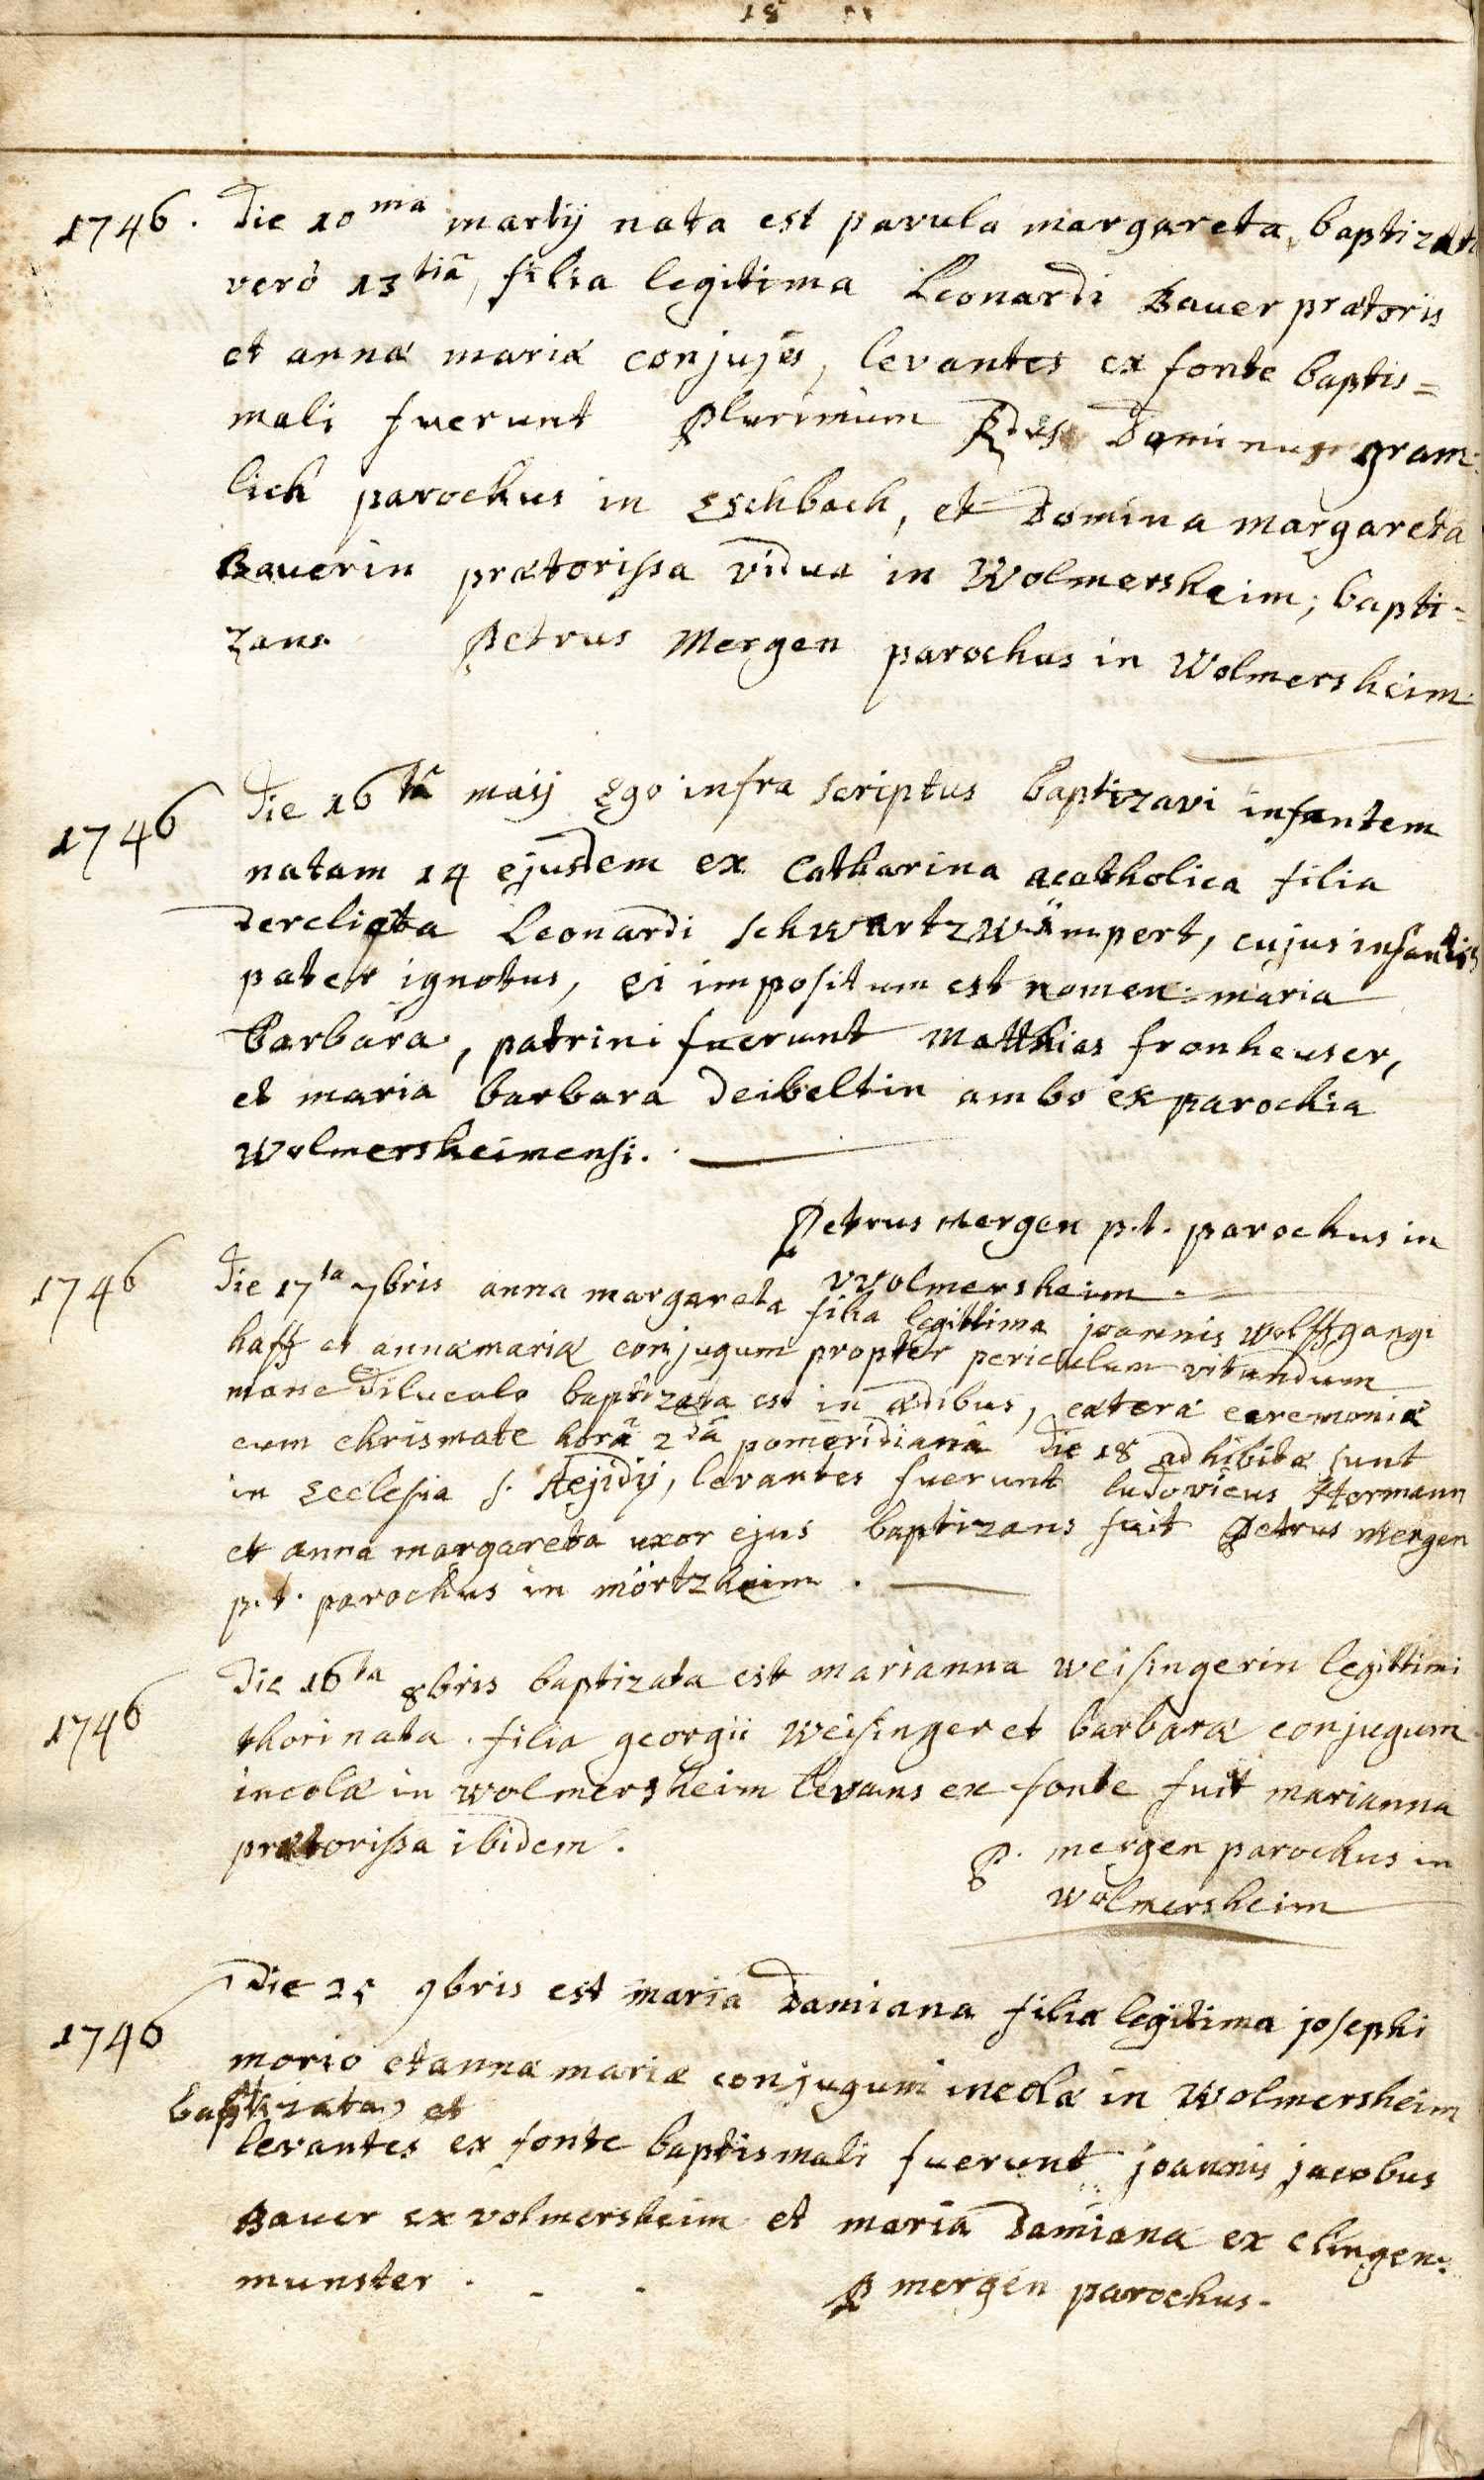 18
1746. Die 10ma martij nata est parvula margareta, baptizata
verò 13tiâ, filia legitima Leonardi Bauer prætoris
et annæ mariæ conjugis, levantes ex fonte baptis=
mali fuerunt Plurimum Rdus Dominus gram:
lich parochus in Eschbach, et Domina margareta
Bauerin prætorissa vidua in Wolmersheim; bapti=
zans Petrus Mergen parochus in Wolmersheim.
1746 Die 16tâ maij Ego infra scriptus baptizavi infantem
natam 14 ejusdem ex Catharina acatholica filia
derelicta Leonardi schwartzwämpert, cujus infantis
pater ignotus, ei impositum est nomen maria
barbara, patrini fuerunt Matthias fronheuser,
et maria barbara Deibeltin ambo ex parochia
Wolmersheimensi.
Petrus Mergen p.t. parochus in
Wolmersheim.
1746 Die 17ta 7bris anna margareta filia legittima joannis Wolffgangi
haff et annæ mariæ conjugum propter periculum vitandum
mane diluculo baptizata est in ædibus, cæteræ ceremoniæ
cum chrismate horâ 2dâ pomeridianâ Die 18 adhibitæ sunt
in Ecclesia s. Aejidij, levantes fuerunt ludovicus Hormann
et anna margareta uxor ejus baptizans fuit Petrus Mergen
p.t. parochus in mörtzheim.
1746 Die 16ta 8bris baptizata est marianna weisingerin legittimi
thori nata. filia georgii Weisinger et barbaræ conjugum
incolæ in wolmersheim levans ex fonte fuit marianna
prætorissa ibidem.
P. mergen parochus in
wolmersheim
1746 Die 25 9bris est maria Damiana filia legitima josephi
morio et annæ mariæ conjugum incolæ in Wolmersheim
baptizata, et
levantes ex fonte baptismali fuerunt joannis jacobus
Bauer ex volmersheim et maria Damiana ex clingen:
munster. - -
P mergen parochus.